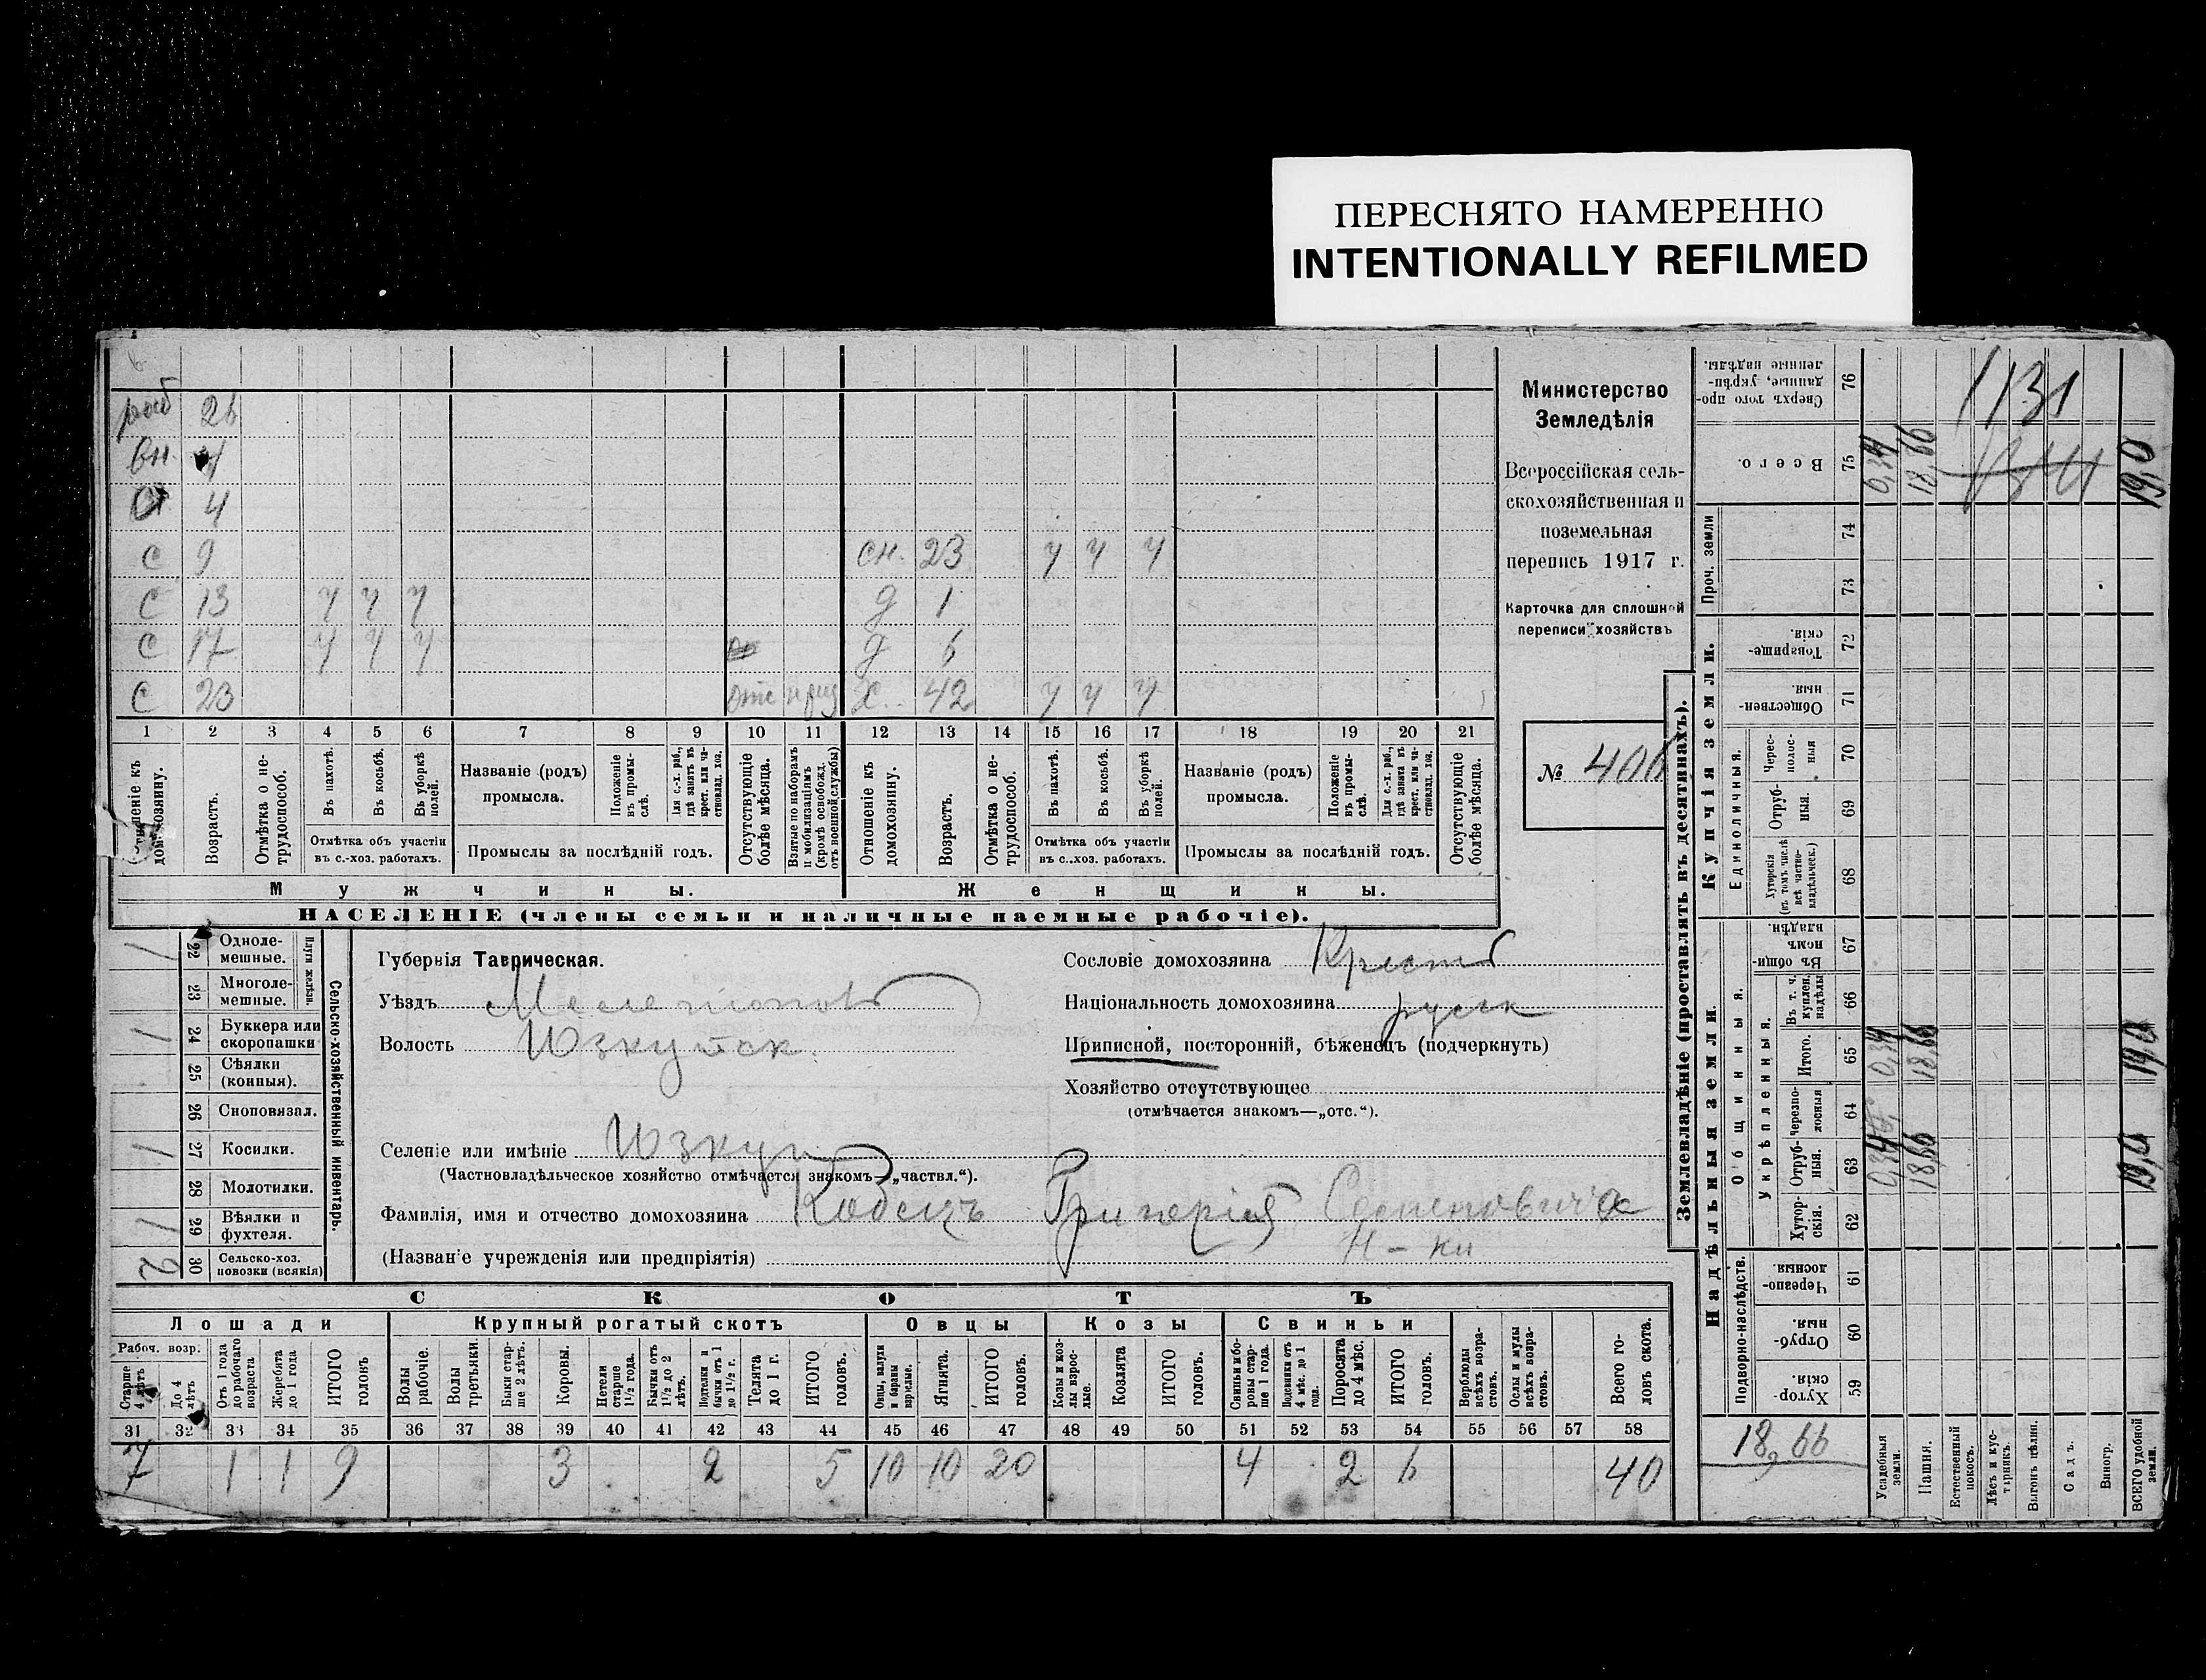 ПЕРЕСНЯТО НАМЕРЕННО
INTENTIONALLY REFILMED
раб 26
вн. 4
с 9
с 13 ч ч ч
с 17 ч ч ч
с 23
сн. 23 ч ч ч
д 1
д 6
х. 42 ч ч ч
1 2 3 4 5 6 7 8 9 10 11 12 13 14 15 16 17 18 19 20 21
домохозяину.
Возрастъ.
Отмѣтка о не-
трудоспособ.
Въ пахотѣ.
Въ косьбѣ.
Въ уборкѣ
полей.
Отмѣтка объ участіи
въ с.-хоз. работахъ.
Названіе (родъ)
промысла.
Положеніе
въ промы-
слѣ.
Для с.-х. раб.,
гдѣ занятъ въ
крест. или ча-
стновлад. хоз.
Промыслы за послѣдній годъ.
Отсутствующіе
болѣе мѣсяца.
Взятые по наборамъ
и мобилизаціямъ
(кромѣ освобожд.
отъ военной службы)
Отношеніе къ
домохозяину.
Возрастъ.
Отмѣтка о не-
трудоспособ.
Въ пахотѣ.
Въ косьбѣ.
Въ уборкѣ
полей.
Отмѣтка объ участіи
въ с..хоз. работахъ.
Названіе (родъ)
промысла.
Положеніе
въ промы-
слѣ.
Для с.-х. раб.,
гдѣ занята въ
крест. или ча-
стновлад. хоз.
Промыслы за послѣдній годъ.
Отсутствующіе
болѣе мѣсяца.
Мужчины.
Женщины.
НАСЕЛЕНІЕ (члены семьи и наличные наемные рабочіе).
Министерство
Земледѣлія
Всероссійская сель-
скохозяйственная и
поземельная
перепись 1917 г.
Карточка для сплошной
переписи хозяйствъ
№
22 Одноле-
мешные. 1
23 Многоле-
мешные.
Плуги желѣзн.
24 Буккера или
скоропашки 1
25 Сѣялки
(конныя).
26 Сноповязал.
27 Косилки. 1
28 Молотилки.
29 Вѣялки и
фухтеля. 1
30 Сельско-хоз.
повозки (всякія) 2
Сельско-хозяйственный инвентарь.
Губернія Таврическая.
Уѣздъ Мелетопов
Волость Юзкуйск.
Селеніе или имѣніе Юзкуи
(Частновладѣльческое хозяйство отмѣчается знакомъ—„частвл.“).
Фамилія, имя и отчество домохозяина Кобецъ Григорія
(Названіе учрежденія или предпріятія) Н-ки
Сословіе домохозяина Крест
Національность домохозяина русск
Приписной, посторонній, бѣженецъ (подчеркнуть)
Хозяйство отсутствующее
(отмѣчается знакомъ—„отс.“).
СКОТЪ
Лошади
Крупный рогатый скотъ
Овцы
Козы
Свиньи
Рабоч. возр.
Старше
4 лѣтъ
До 4
лѣтъ
Отъ 1 года
до рабочаго
возраста
Жеребята
до 1 года
ИТОГО
головъ
Волы
рабочіе.
Волы
третьяки.
Быки стар-
ше 2 лѣтъ.
Коровы.
Нетели
старше
1½ года.
Бычки отъ
1½ до 2
лѣтъ.
Подтелки и
бычки отъ 1
до 1½ г.
Телята
до 1 г.
ИТОГО
головъ.
Овцы, валухи
и бараны
взрослые.
Ягнята.
ИТОГО
головъ.
Козы и коз-
лы взрос-
лые.
Козлята
ИТОГО
головъ.
Свиньи и бо-
ровы стар-
ше 1 года.
Подсвинки отъ
4 мѣс. до 1
года.
Поросята
до 4 мѣс.
ИТОГО
головъ.
Верблюды
всѣхъ возра-
стовъ.
Ослы и мулы
всѣхъ возра-
стовъ.
Всего го-
ловъ скота.
31 32 33 34 35 36 37 38 39 40 41 42 43 44 45 46 47 48 49 50 51 52 53 54 55 56 57 58
7 1 1 9 3 2 5 10 10 20 4 2 6 40
Землевладѣніе (проставлять въ десятинахъ).
Сверхъ того про-
данные, укрѣп-
ленные надѣлы.
76
1131
Всего.
75
0,34
18,66
19,0
Проч. земли
74
73
Купчія земли.
Товарище-
скія.
72
Обществен-
ныя.
71
Единоличныя.
Черес-
полос-
ныя
70
Отруб-
ныя.
69
Хуторскія
(въ томъ числѣ
всѣ частно-
владѣльческ.)
68
Надѣльныя земли.
Общинныя.
Въ общин-
номъ
владѣн.
67
Укрѣпленныя.
Въ т. ч.
куплен.
надѣлы
66
Итого.
65
0,34
18,66
19,0
Черезпо-
лосныя
64
Отруб-
ныя.
63
0,34
18,66
19,0
Хутор-
скія.
62
Подворно-наслѣдств.
Черезпо-
лосныя.
61
Отруб-
ныя.
60
Хутор-
скія.
59
18,66
Усадебныя
земли.
Пашня.
Естественный
покосъ.
Лѣсъ и кус-
тарникъ.
Выгонъ цѣлин.
Садъ.
Виногр.
ВСЕГО удобной
земли.